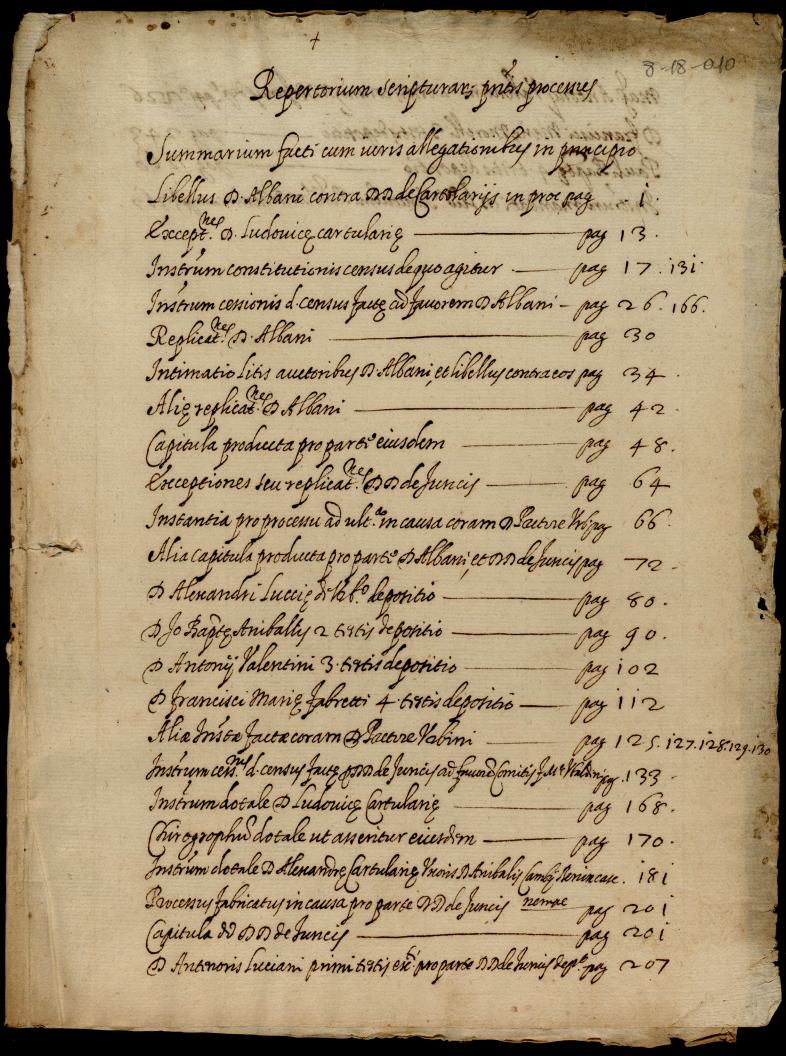 +
8-18-010
Repertorium scripturarz pntis processus
Summarium facti cum iuris allegationibus in principio
Libellus D. Albani contra DD de Cartolarijs in proc pag 1.
Except.nes D. Ludovicę cartularię pag 13.
Instrum constitutionis census de quo agitur pag 17. 131
Instrum cessionis d. census factę ad favorem D Albani pag 26. 166.
Replicat.nes D. Albani pag 30
Intimatio litis auctoribus D. Albani, et libellus contra eos pag 34.
Alię replicat.nes D Albani pag 42.
Capitula producta pro parte eiusdem pag 48.
Exceptiones seu replicat.nes DD de Juncis pag 64
Instantia pro processu ad ult.a in causa coram D Pretore Urb pag 66.
Alia capitula producta pro parte D Albani, et DD de Juncis pag 72.
D Alexandri Luccię de Urb.o depositio pag 80.
D. Jo Baptę Anibally 2 testis depositio pag 90.
D Antonij Valentini 3. testis depositio pag 102
D Francisci Marię Fabretti 4 testis depositio pag 112
Aliæ Instæ factæ coram D Pretore Urbini pag 125. 127. 128. 129. 130
Instrum cess.nis d. census factę DD de Juncis ad favorē Comitis pag. 133.
Instrum dotale D Ludovicę Cartularię pag 168.
Chirographū dotale ut asseritur eiusdem pag 170.
Instrum dotale D Alexandrę Cartularię Uxoris D Anibalis 181
Processus fabricatus in causa pro parte DD de Juncis nempe pag 201
Capitula dd DD de Juncis pag 201
D Antenoris Luciani primi testis pro parte DD de Juncis dep.o pag 207